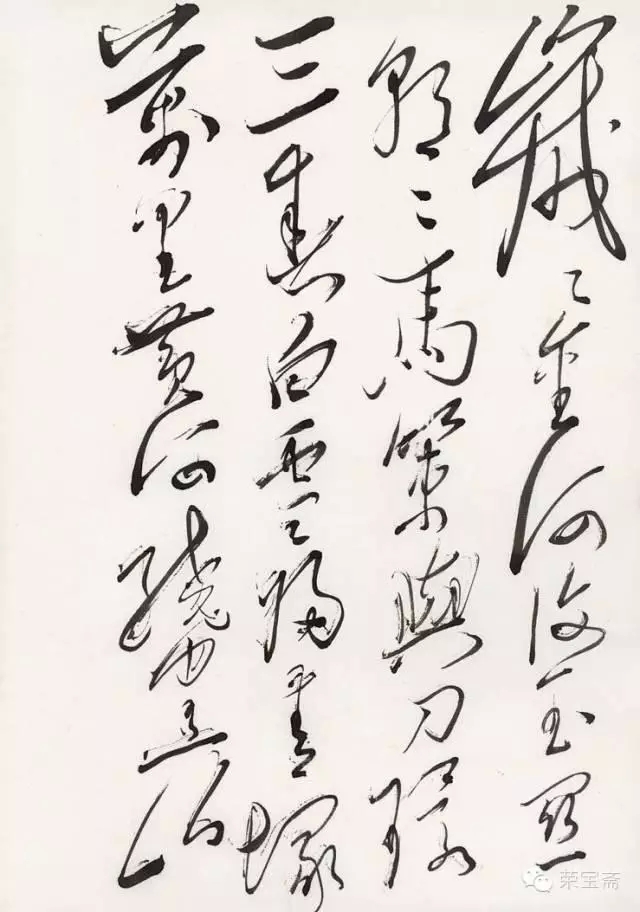 歲〻金河復玉關
朝〻馬策與刀環
三春白雪歸青塚
萬里黃河繞黑山
荣宝斋